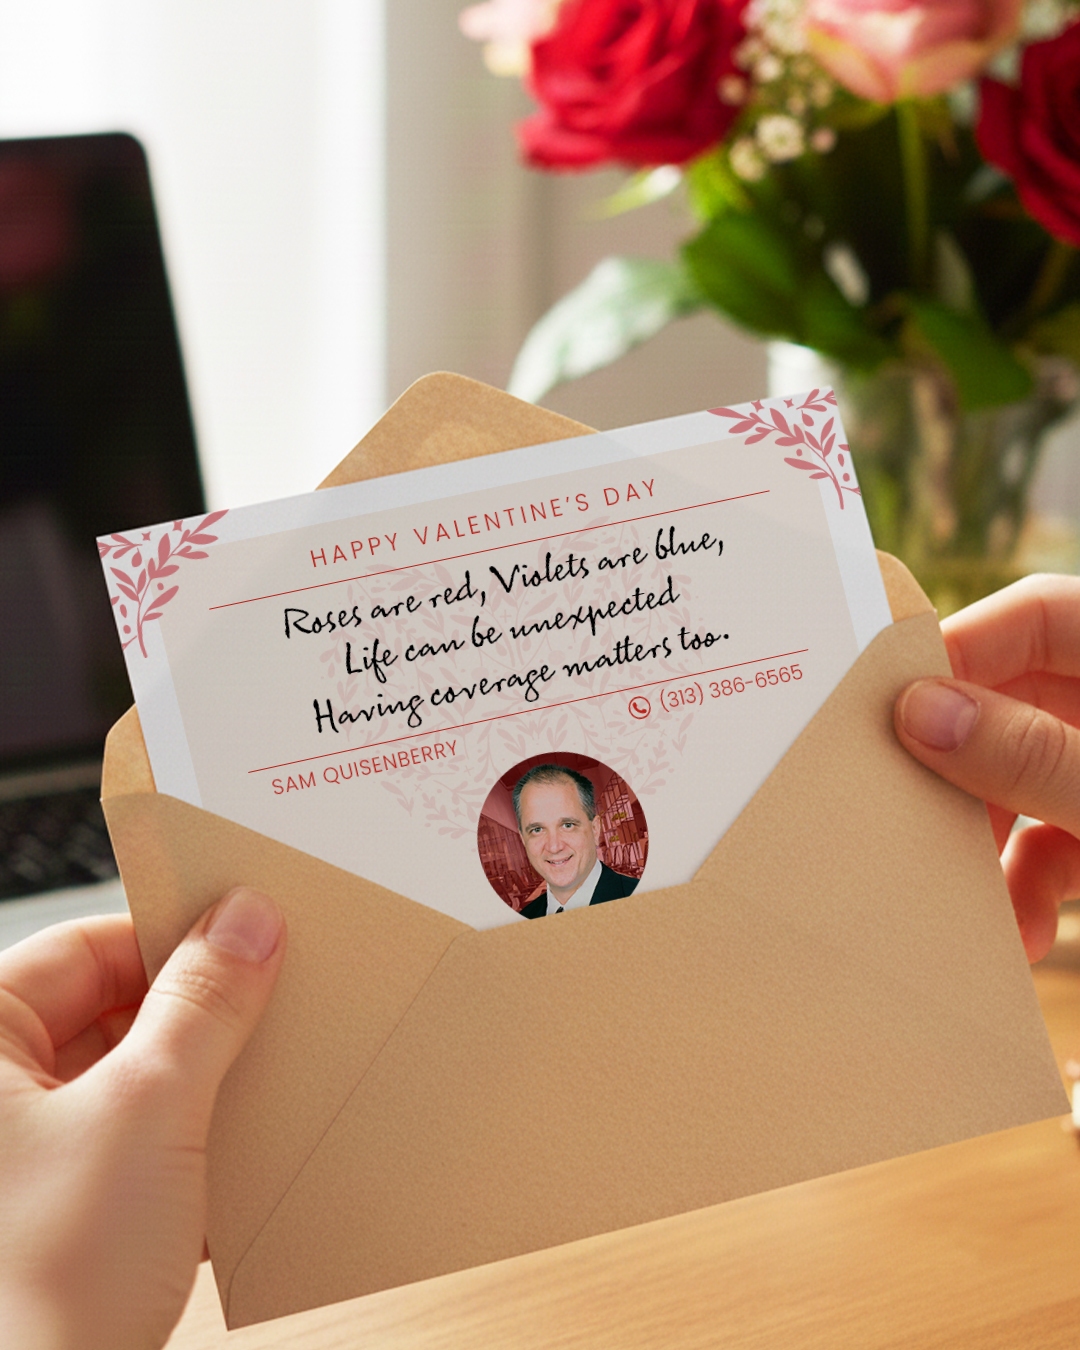 HAPPY VALENTINE'S DAY
Roses are red, Violets are blue,
Life can be unexpected
Having coverage matters too.
(313) 386-6565
SAM QUISENBERRY